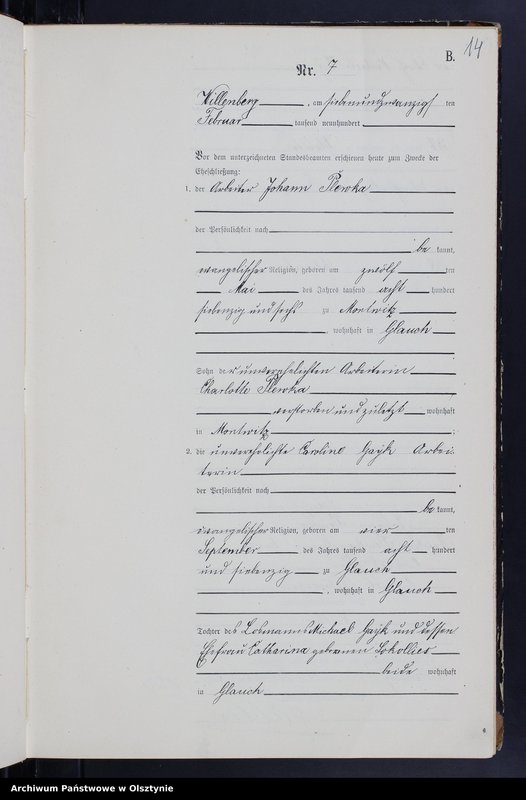 14
B.
Nr. 7
Willenberg, am siebenundzwanzigsten
Februar tausend neunhundert
Vor dem unterzeichneten Standesbeamten erschienen heute zum Zwecke der
Eheschließung:
1. der Arbeiter Johann Plewka
der Persönlichkeit nach
be kannt,
evangelischer Religion, geboren am zwölf ten
Mai des Jahres tausend acht hundert
siebenzig und sechs zu Montwitz
, wohnhaft in Glauch
Sohn der unverehelichten Arbeiterin
Charlotte Plewka
verstorben und zuletzt wohnhaft
in Montwitz
2. die unverehelichte Caroline Gayk Arbei-
terin
der Persönlichkeit nach
be kannt,
evangelischer Religion, geboren am vier ten
September des Jahres tausend acht hundert
und siebenzig zu Glauch
, wohnhaft in Glauch
Tochter des Losmanns Michael Gayk und dessen
Ehefrau Catharina geborenen
beide wohnhaft
in Glauch
Archiwum Państwowe w Olsztynie